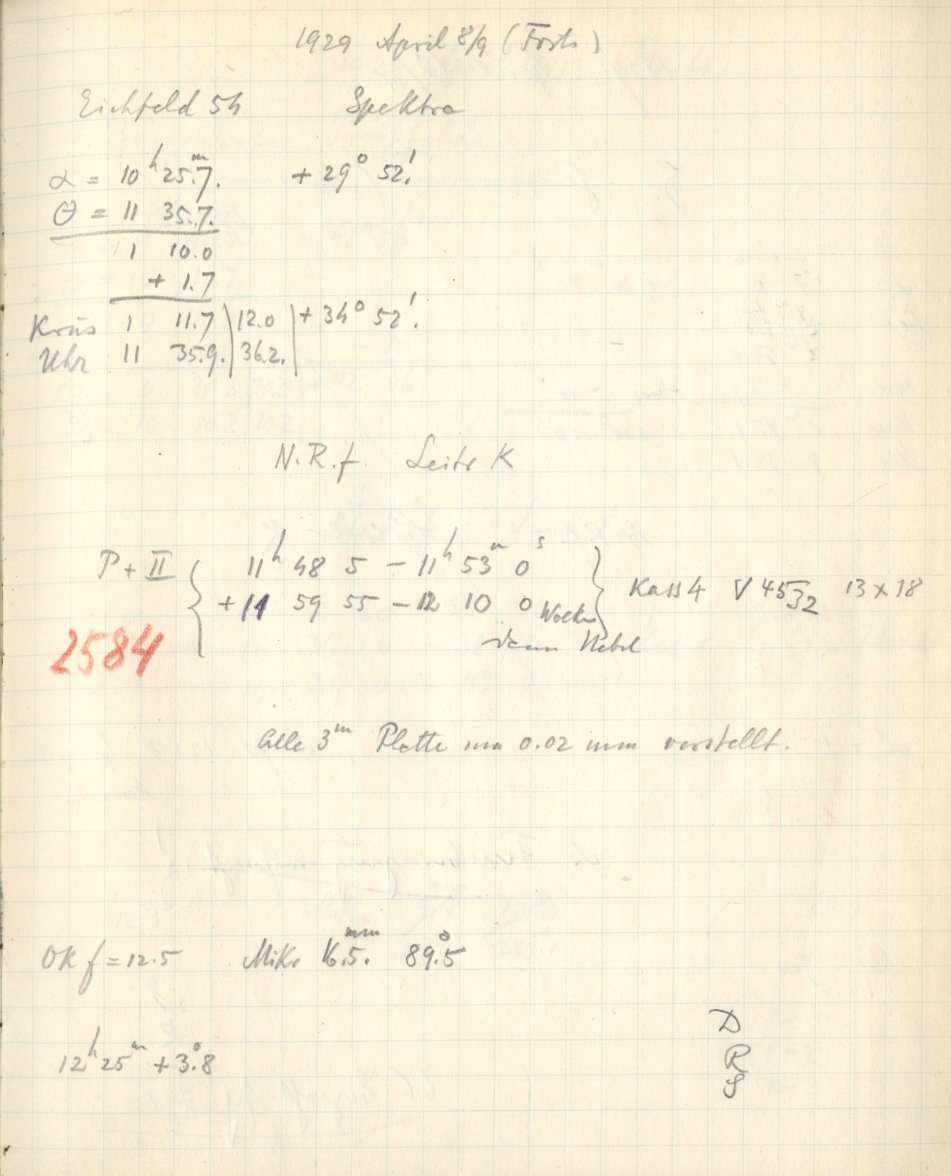 1929 April 8/9 (Forts)
Eichfeld 54 Spektra
α = 10ʰ 25.ᵐ7. + 29° 52!
θ = 11 35.7.
1 10.0
+ 1.7
1 11.7 | 12.0 | + 34° 52!
Uhr 11 35.9. | 36.2. |
N.R.f. Leitr K
P + II { 11ʰ 48 5 – 11ʰ 53ᵐ 0ˢ } Kass 4 V 4532 13 x 18
+ 11 59 55 – 12 10 0 Wolken
dann Nebel
2584
Alle 3ᵐ Platte um 0.02 mm verstellt.
OK f = 12.5 Mikr 16.5.ᵐᵐ 89.°5
12ʰ 25ᵐ + 3.°8
D
R
S